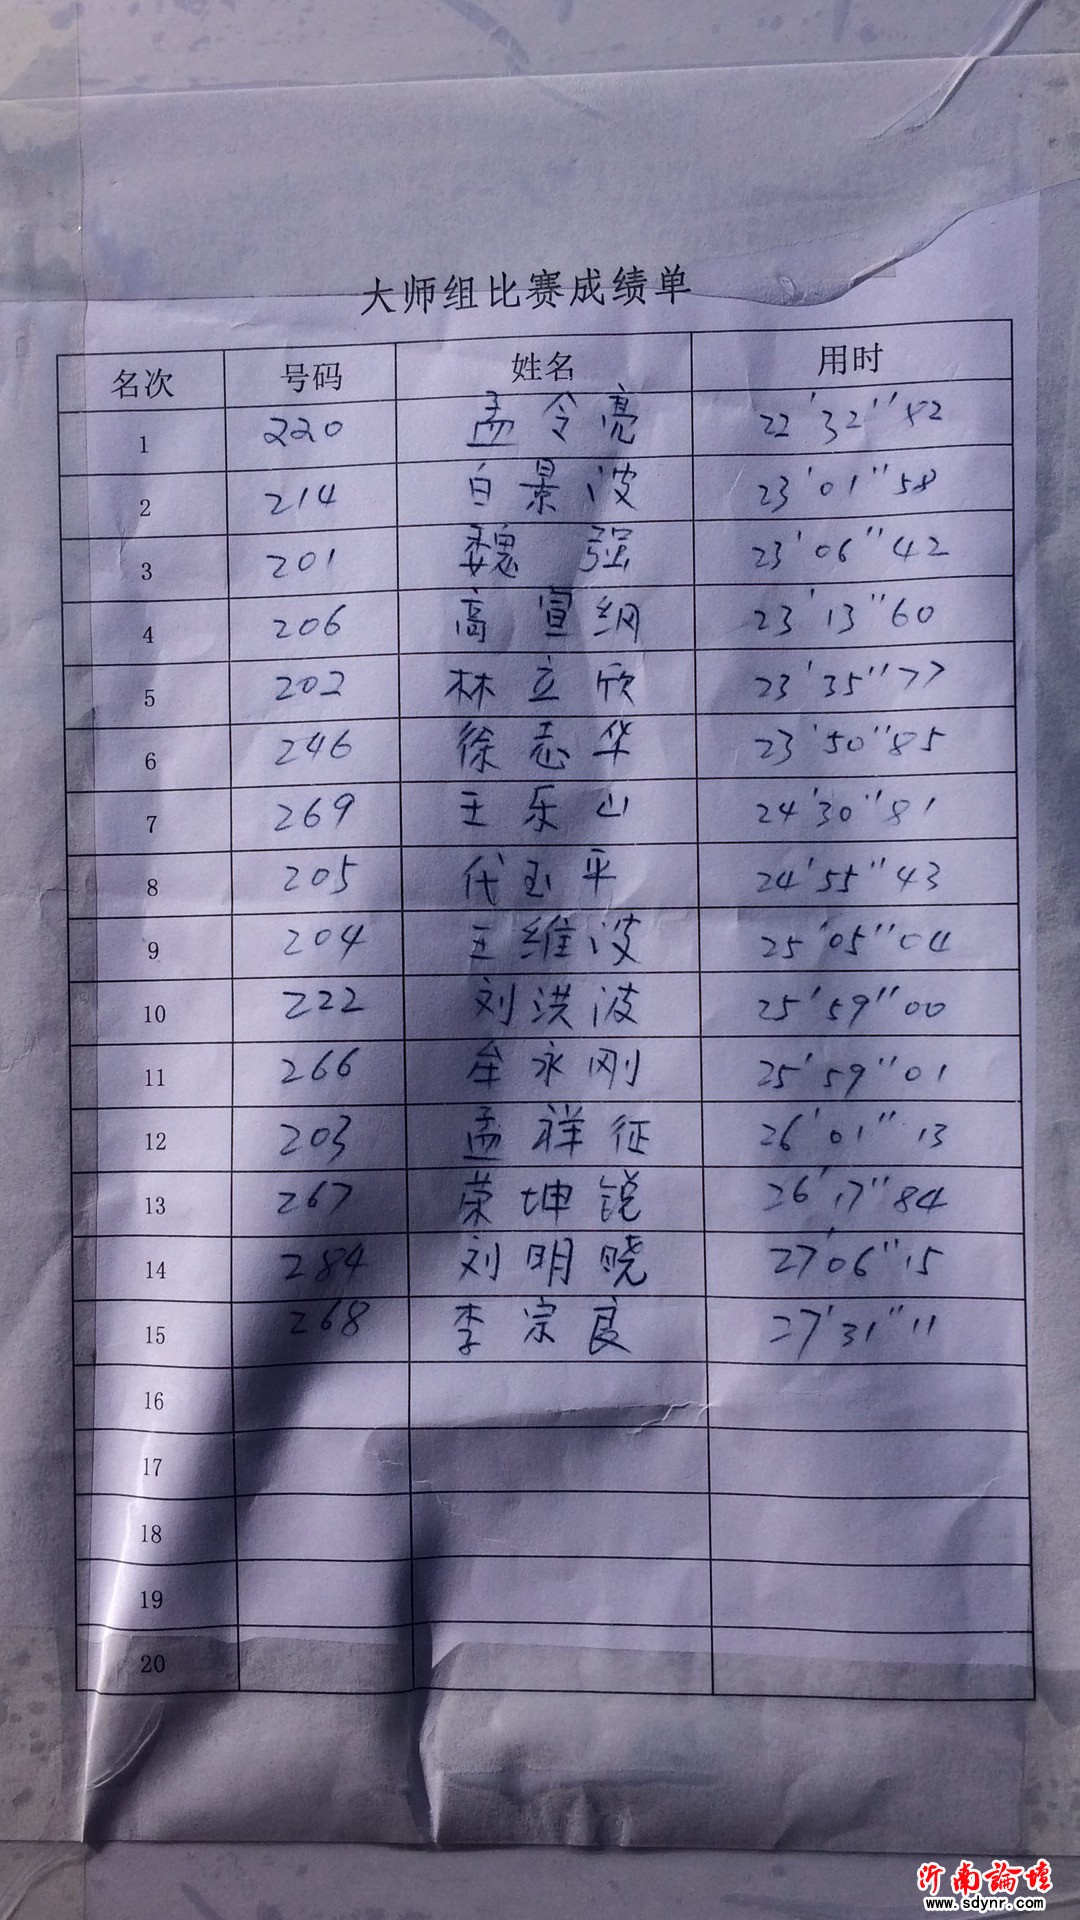 大师组比赛成绩单
名次 号码 姓名 用时
1 220 孟令亮 22'32''82
2 214 白景波 23'01''58
3 201 魏强 23'06''42
4 206 高宣纲 23'13''60
5 202 林立欣 23'35''77
6 246 徐志华 23'50''85
7 269 王乐山 24'30''81
8 205 代玉平 24'55''43
9 204 王维波 25'05''04
10 222 刘洪波 25'59''00
11 266 牟永刚 25'59''01
12 203 孟祥征 26'01''13
13 267 荣坤锐 26'17''84
14 284 刘明晓 27'06''15
15 268 李宗良 27'31''11
16
17
18
19
20
沂南論壇
www.sdynr.com